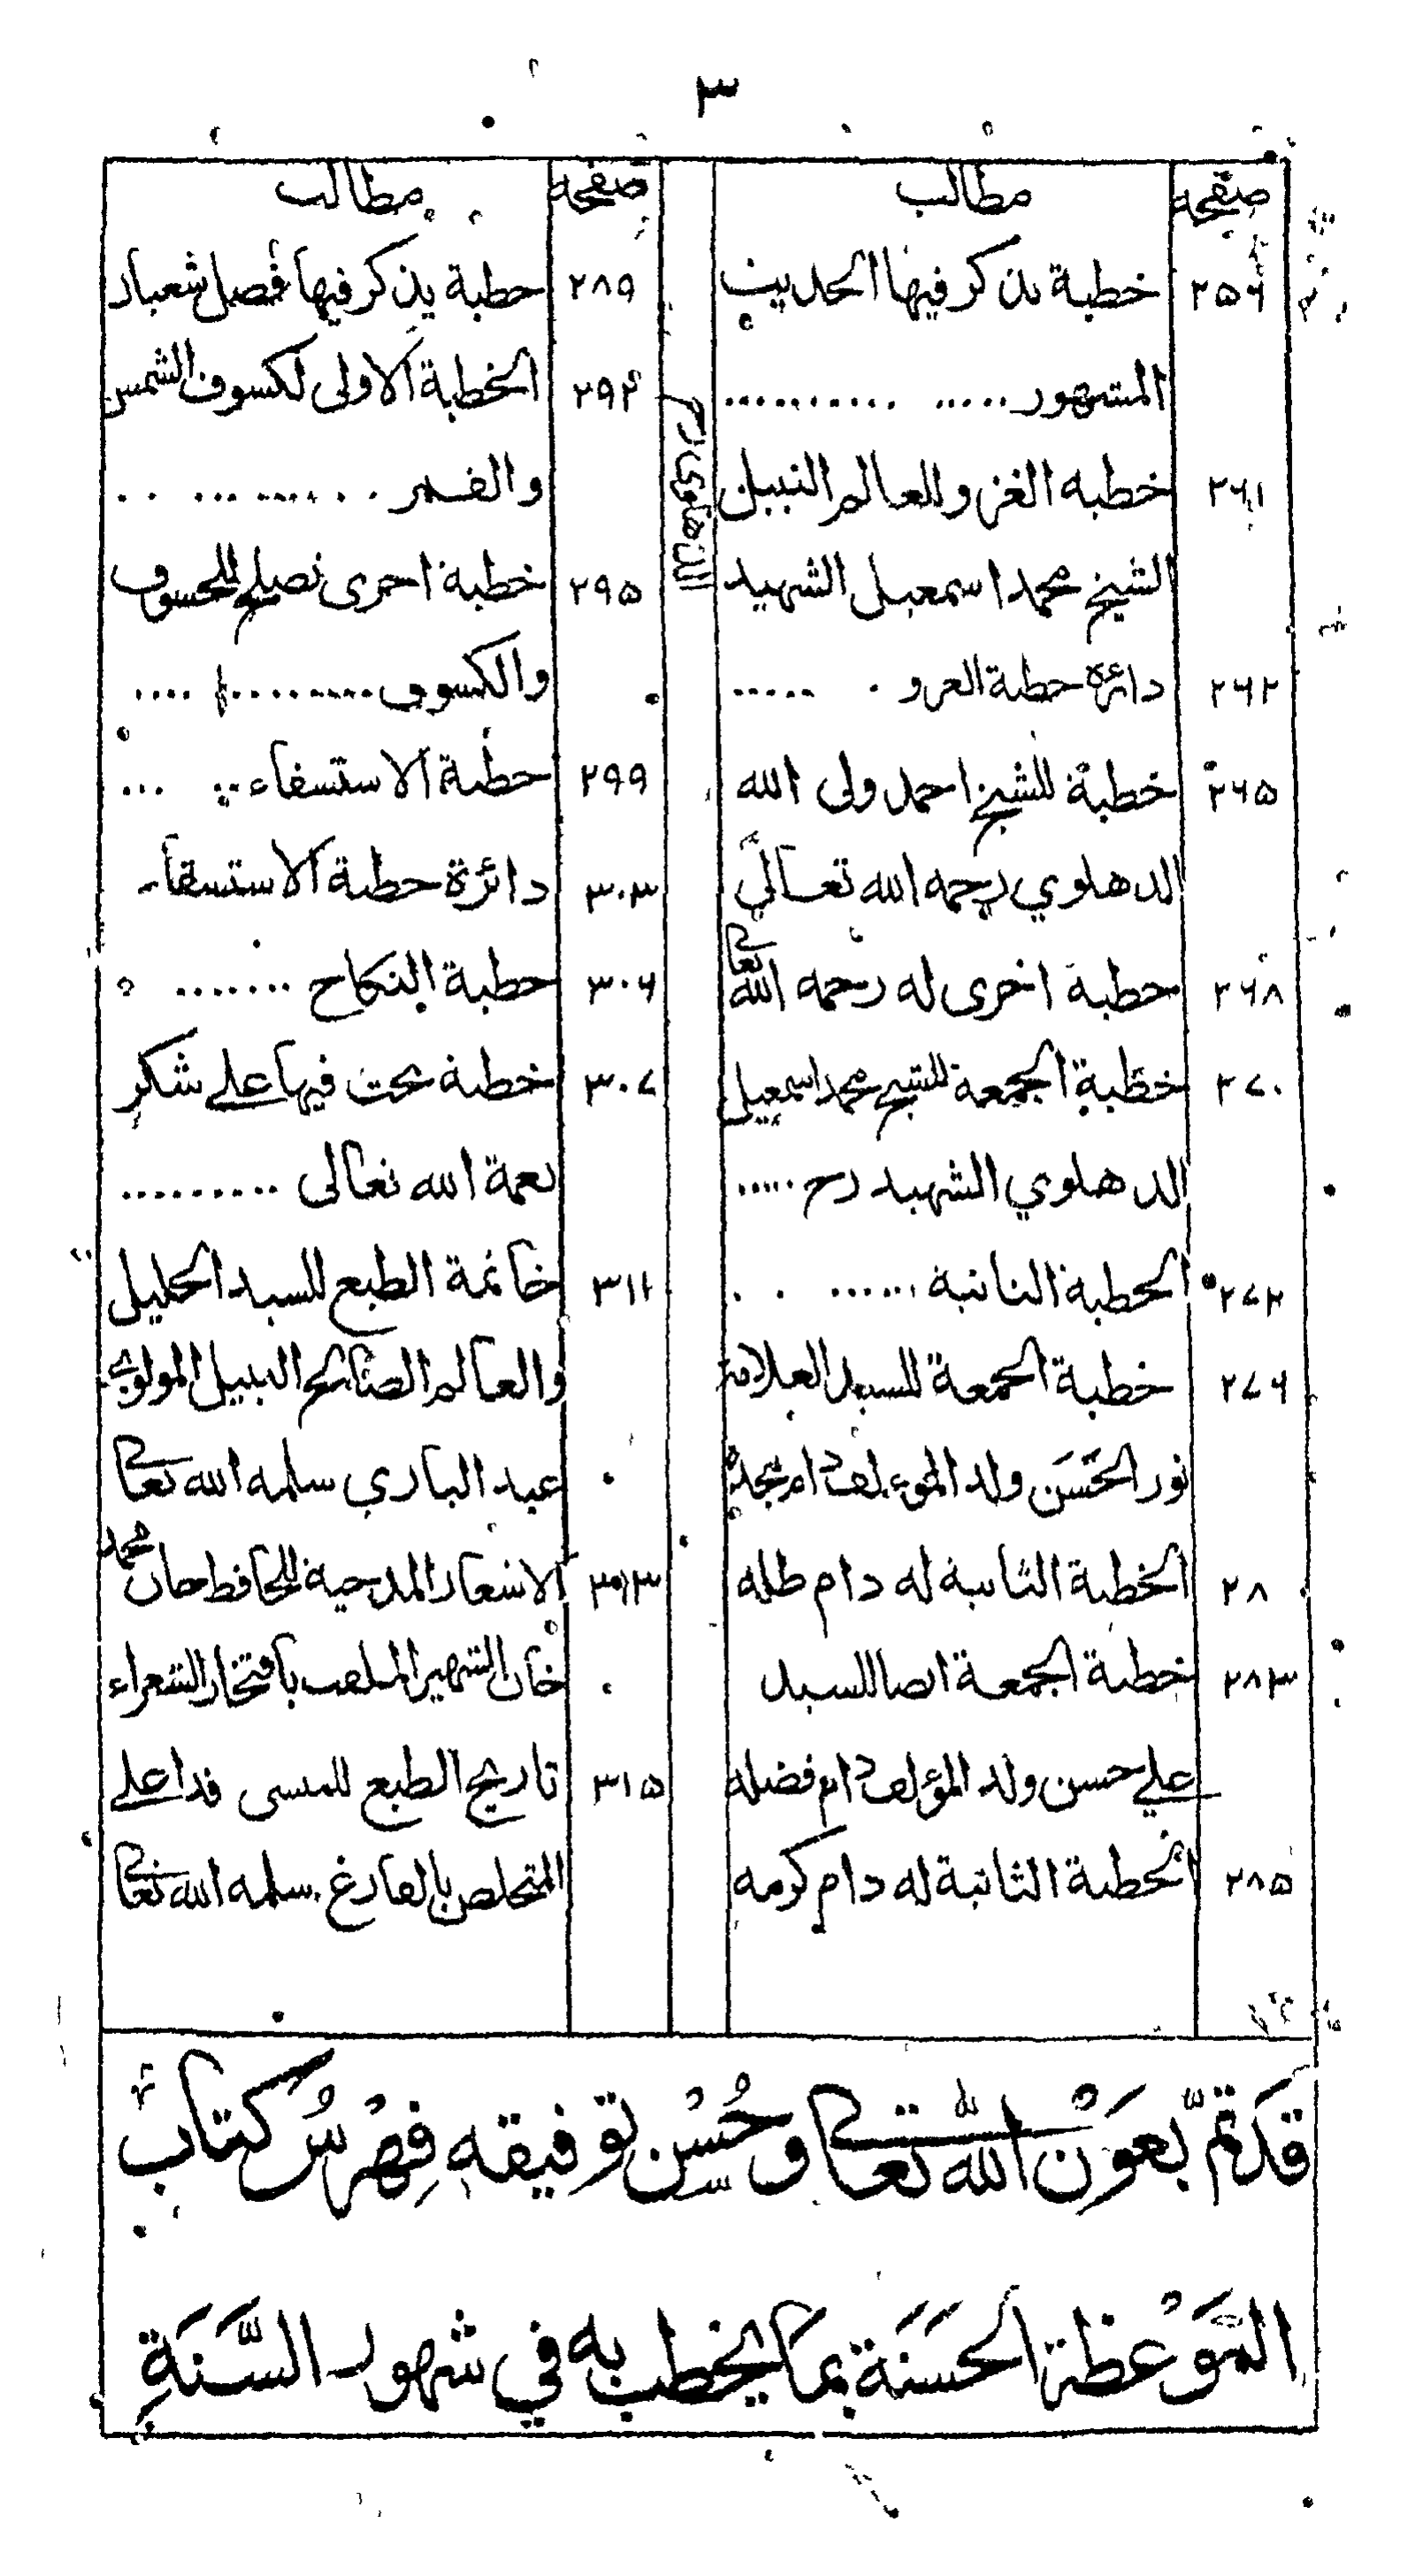 ٣
صفحه مطالب
٢٥٦ خطبة يذكر فيها الحديث
المشهور
٢٦١ خطبه الغزو للعالم النبيل
الشيخ محمد اسمعيل الشهيد
الدهلوي رح
٢٦٢ دائرة خطبة الغزو
٢٦٥ خطبة للشيخ احمد ولى الله
الدهلوي رحمه الله تعالى
٢٦٨ خطبة اخرى له رحمه الله تعالى
٢٧٠ خطبة الجمعة للشيخ محمد اسمعيل
الدهلوي الشهيد رح
٢٧٢ الخطبة الثانية
٢٧٦ خطبة الجمعة للسيد العلامة
نور الحَسَن ولد المؤلف دام مجده
٢٨٠ الخطبة الثانية له دام ظله
٢٨٣ خطبة الجمعة ايضا للسيد
علي حسن ولد المؤلف دام فضله
٢٨٥ الخطبة الثانية له دام كرمه
صفحه مطالب
٢٨٩ خطبة يذكر فيها فضل شعبان
٢٩٢ الخطبة الاولى لكسوف الشمس
والقمر
٢٩٥ خطبة اخرى تصلح للخسوف
والكسوف
٢٩٩ خطبة الاستسقاء
٣٠٣ دائرة خطبة الاستسقاء
٣٠٦ خطبة النكاح
٣٠٧ خطبة يحث فيها على شكر
نعمة الله تعالى
٣١١ خاتمة الطبع للسيد الجليل
والعالم الصالح النبيل المولوي
عبد الباري سلمه الله تعالى
٣١٣ الاشعار المدحية للحافظ خان محمد
خان الشهير الملقب بافتخار الشعراء
٣١٥ تاريخ الطبع للمنسى فدا على
المتخلص بالفارغ سلمه الله تعالى
قَدتمّ بعَوْن الله تعالى وحُسْن توفيقه فِهْرسُ كتاب
المَوْعظة الحَسَنَة بما يخطب به في شهور السَّنَةِ